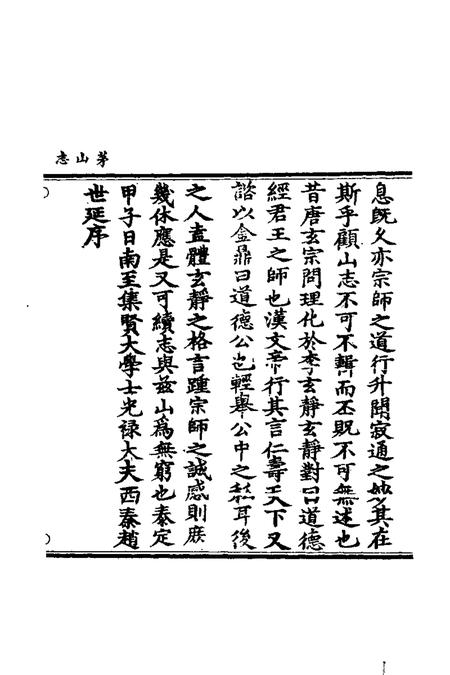 茅山志
息既久亦宗師之道行升聞寂通之妙其在
斯乎顧山志不可不輯而丕貺不可無述也
昔唐玄宗問理化於李玄靜玄靜對曰道德
經君王之師也漢文帝行其言仁壽天下又
諮以金鼎曰道德公也輕舉公中之耳後
之人盍體玄靜之格言踵宗師之誠感則庶
幾休應是又可續志與茲山為無窮也泰定
甲子日南至集賢大學士光祿大夫西秦趙
世延序